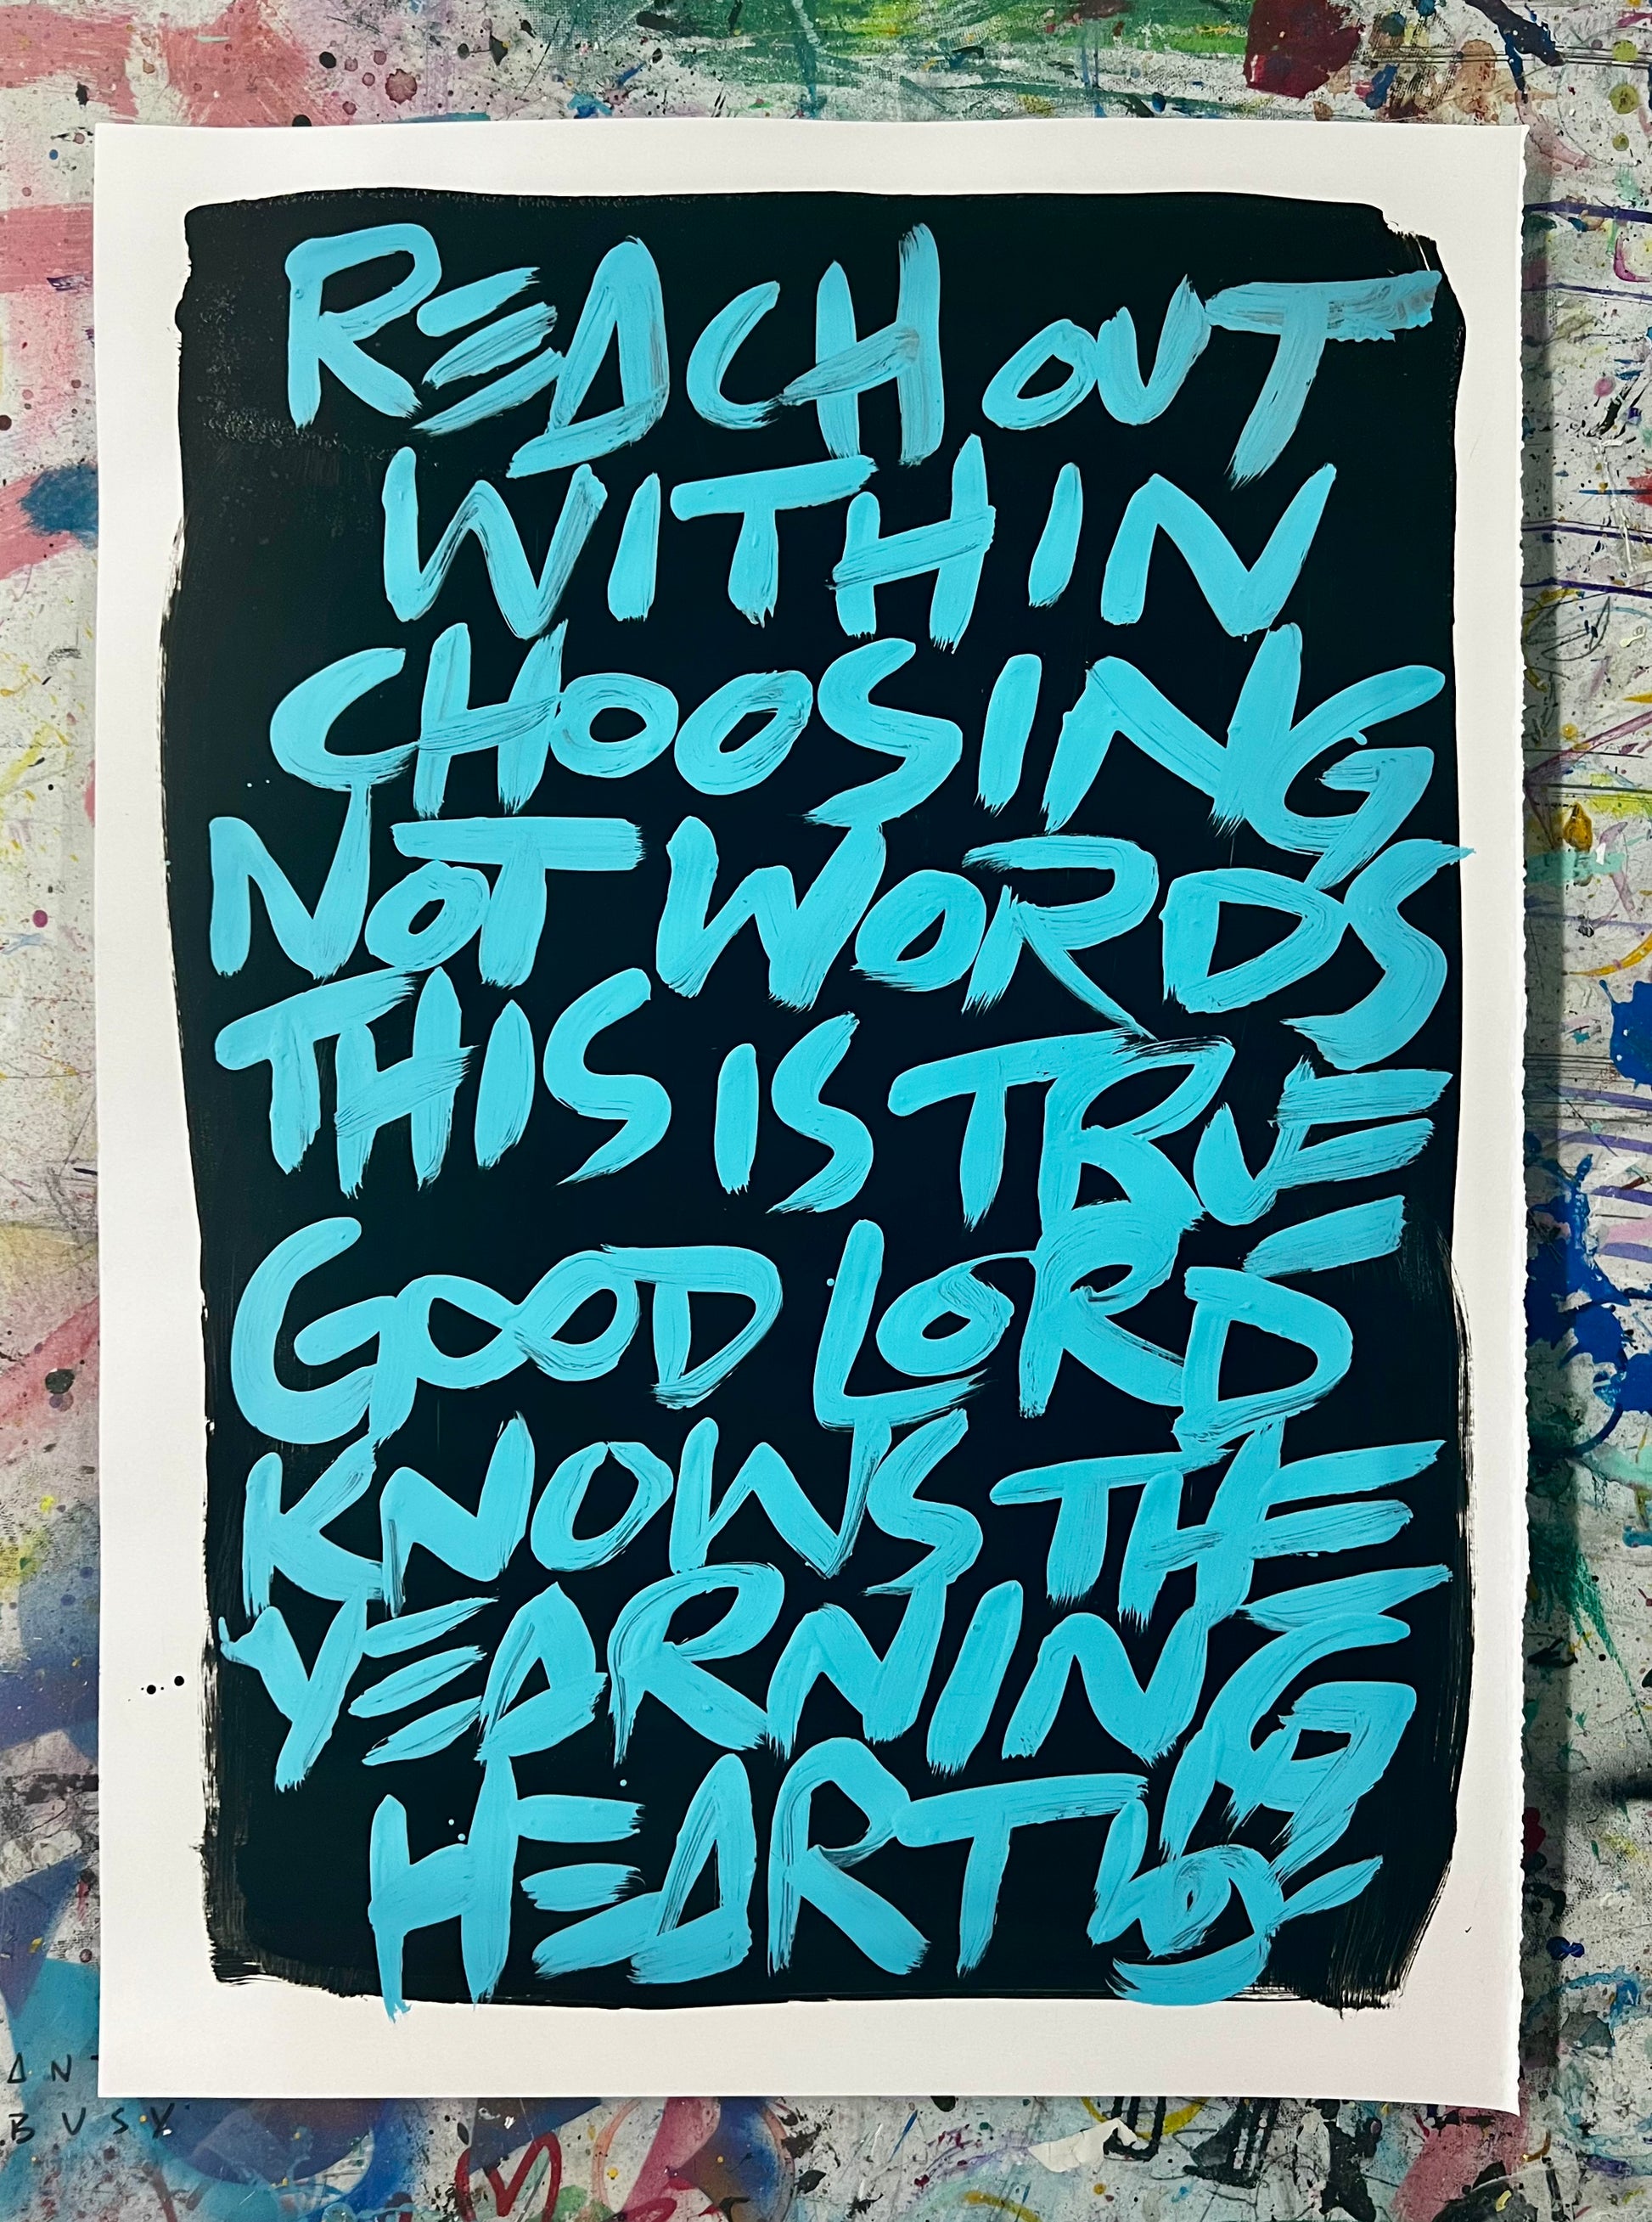 REACH OUT
WITHIN
CHOOSING
NOT WORDS
THIS IS TRUE
GOOD LORD
KNOWS THE
YEARNING
HEART
AN
BUSY